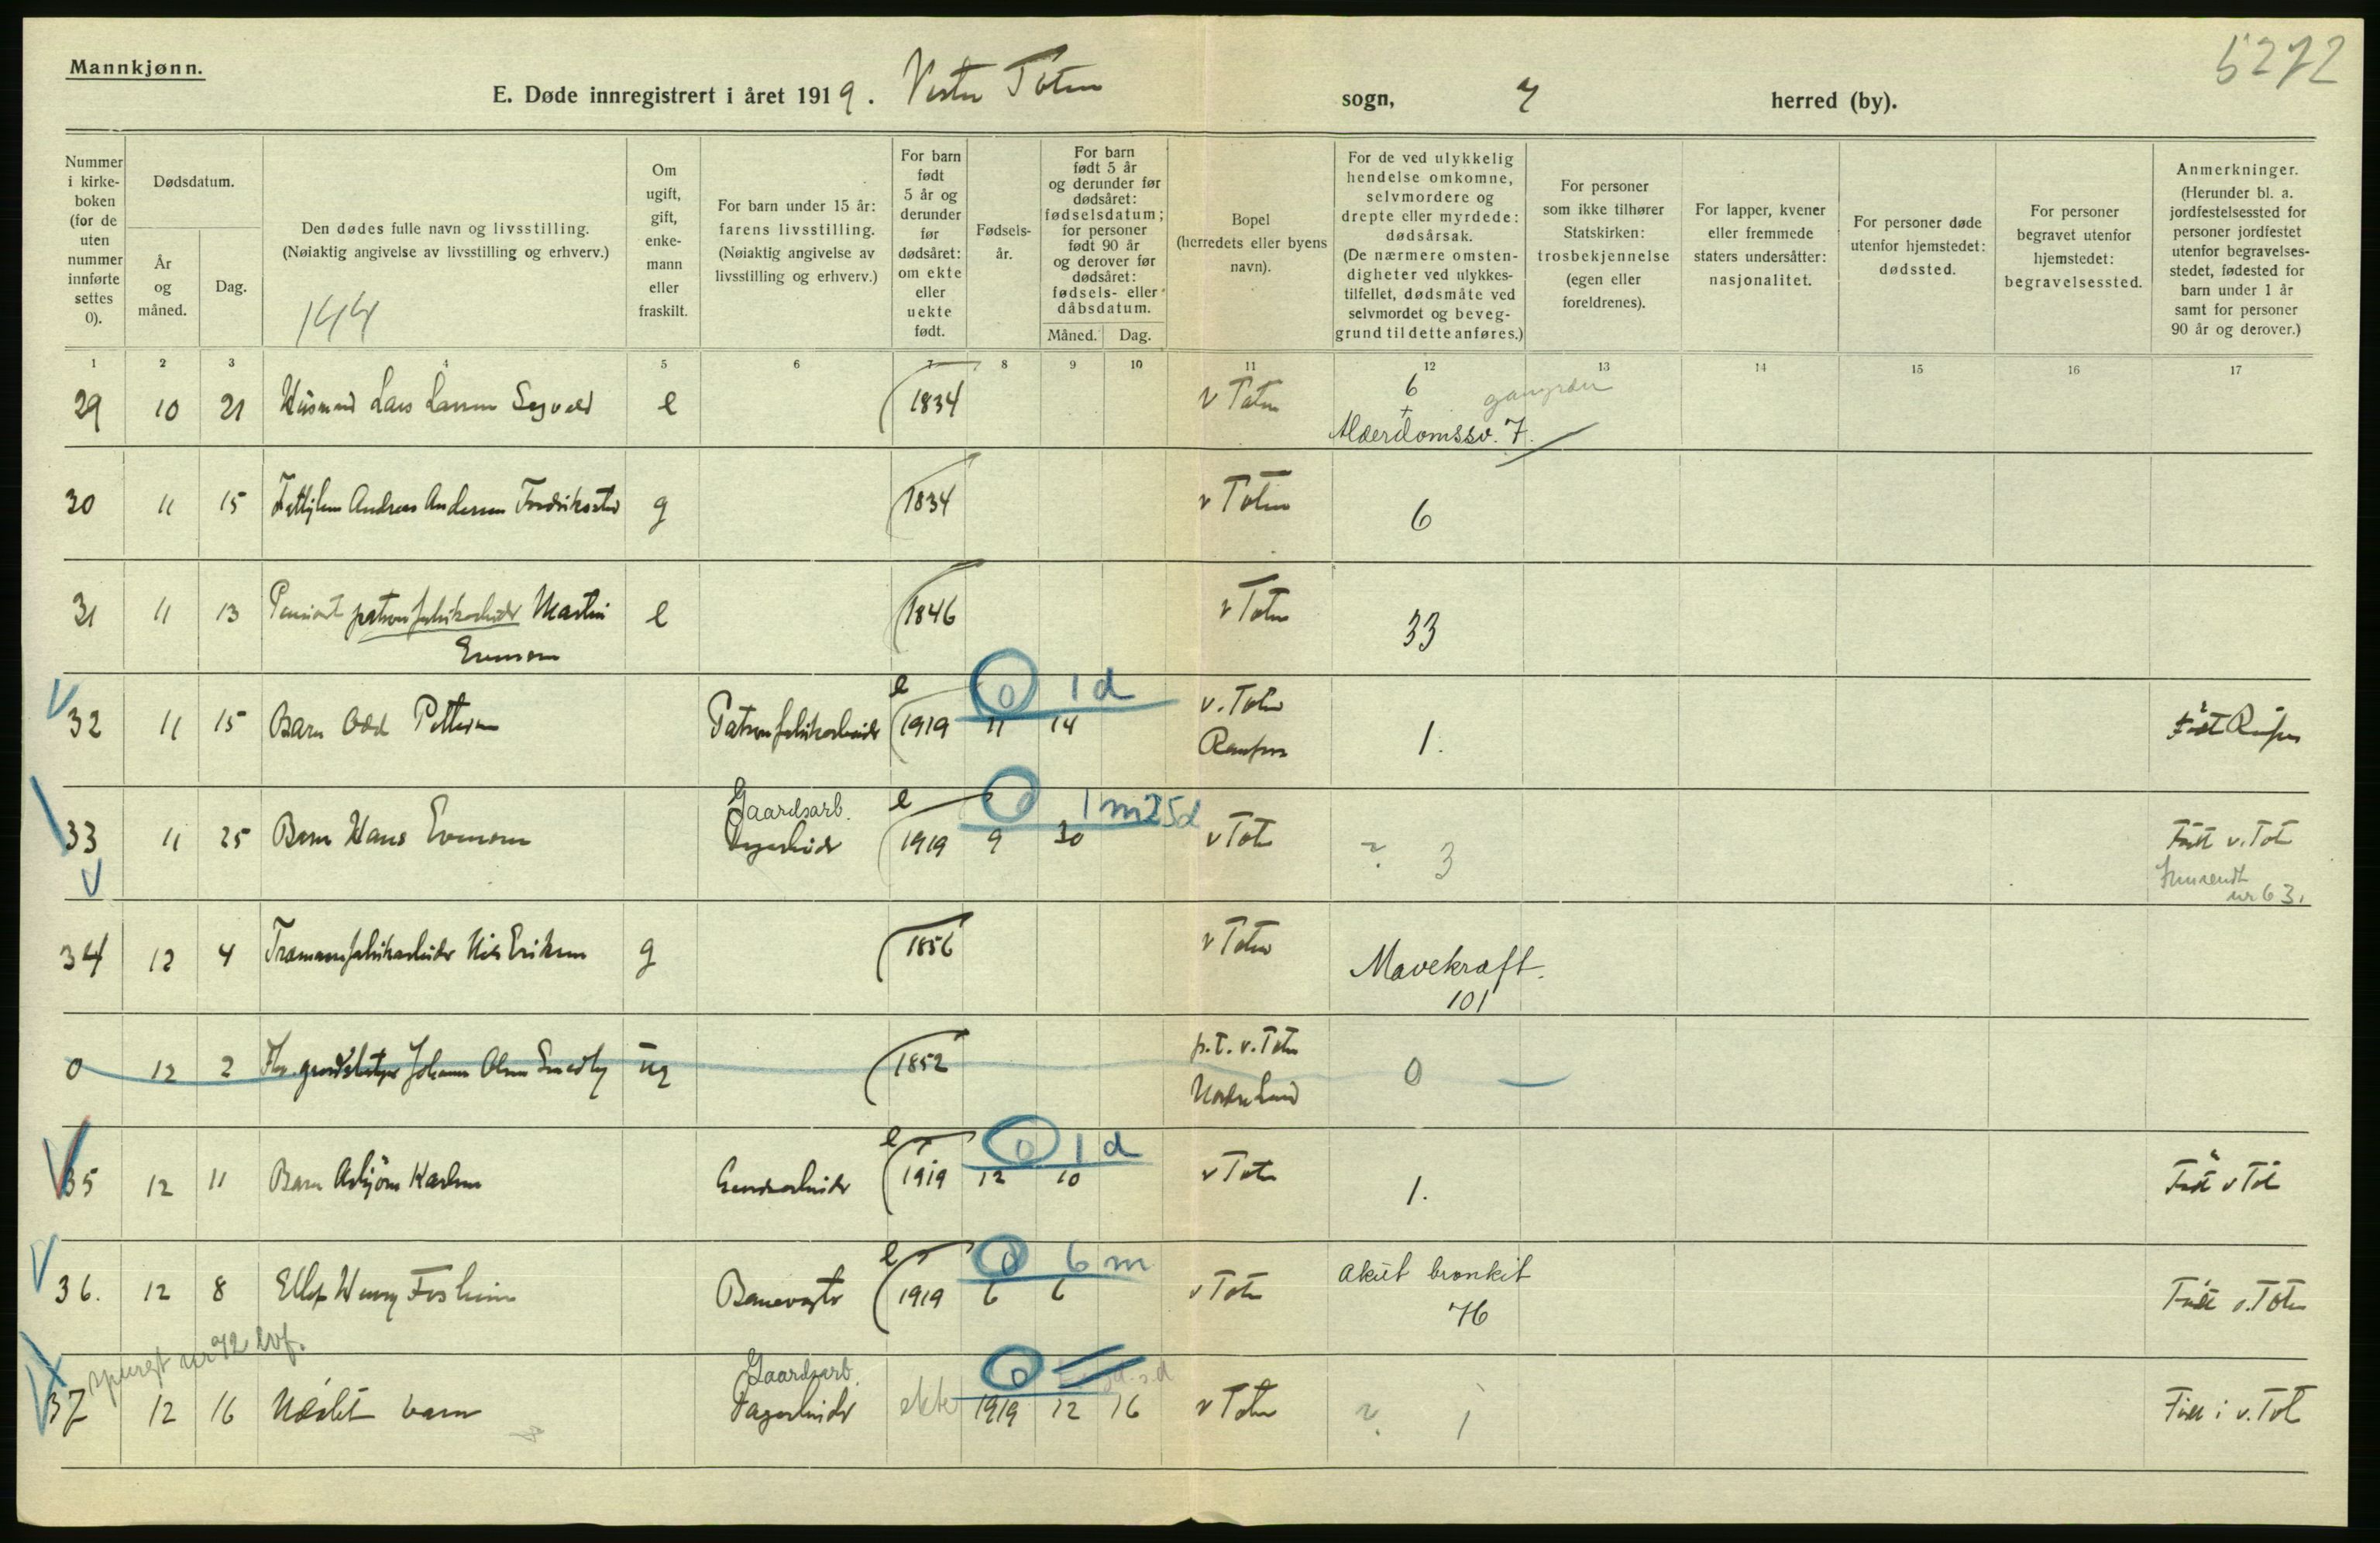 Mannkjønn.
5272
E. Døde innregistrert i året 1919. Vestre Toten sogn, herred (by).
Nummer i kirke-boken (for de uten nummer innførte settes 0).
Dødsdatum.
År og måned.
Dag.
Den dødes fulle navn og livsstilling.
(Nøiaktig angivelse av livsstilling og erhverv.)
144
Om ugift, gift, enke-mann eller fraskilt.
For barn under 15 år: farens livsstilling. (Nøiaktig angivelse av livsstilling og erhverv.)
For barn født 5 år og derunder før dødsåret: om ekte eller uekte født.
Fødsels-år.
For barn født 5 år og derunder før dødsåret: fødselsdatum; for personer født 90 år og derover før dødsåret: fødsels- eller dåbsdatum.
Måned. Dag.
Bopel (herredets eller byens navn).
For de ved ulykkelig hendelse omkomne, selvmordere og drepte eller myrdede: dødsårsak. (De nærmere omsten-digheter ved ulykkes-tilfellet, dødsmåte ved selvmordet og beveg-grund til dette anføres.)
For personer som ikke tilhører Statskirken: trosbekjennelse (egen eller foreldrenes).
For lapper, kvener eller fremmede staters undersåtter: nasjonalitet.
For personer døde utenfor hjemstedet: dødssted.
For personer begravet utenfor hjemstedet: begravelsessted.
Anmerkninger. (Herunder bl. a. jordfestelsessted for personer jordfestet utenfor begravelses-stedet, fødested for barn under 1 år samt for personer 90 år og derover.)
1 2 3 4 5 6 7 8 9 10 11 12 13 14 15 16 17
29 10 21 Husmand Lars Larsen e 1834 v Toten 6 gangræn
Alderdomssv. 7.
30 11 15 Andreas Andersen g 1834 v Toten 6
31 11 13 patronfabrikarbeider Martin e 1846 v Toten 33
Evensen
e 0 1 d
32 11 15 Barn Odd Pettersen Patronfabrikarbeider 1919 11 14 v. Toten Raufoss 1. Født Raufoss
Gaardsarb. e 0 1 m 25 d
33 11 25 Barn Hans Evensen Dagarbeider 1919 9 30 v Toten ? 3 Født v. Tot
nr 63.
34 12 4 Nils Eriksen g 1856 v Toten Mavekræft.
101
0 12 2 Johannes Olsen ug 1852 p.t. v. Toten 0
Nordre Land
e 0 1 d
35 12 11 Barn Asbjörn Karlsen 1919 12 10 v Toten 1. Født v Tot
e 0 6 m
36. 12 8 Henry 1919 6 6 v Toten Akut bronkit Født v. Toten
76
spurgt nr 92
Gaardsarb. 0
37 12 16 barn Dagarbeider ekte 1919 12 16 v Toten ? 1 Født i v. Tot